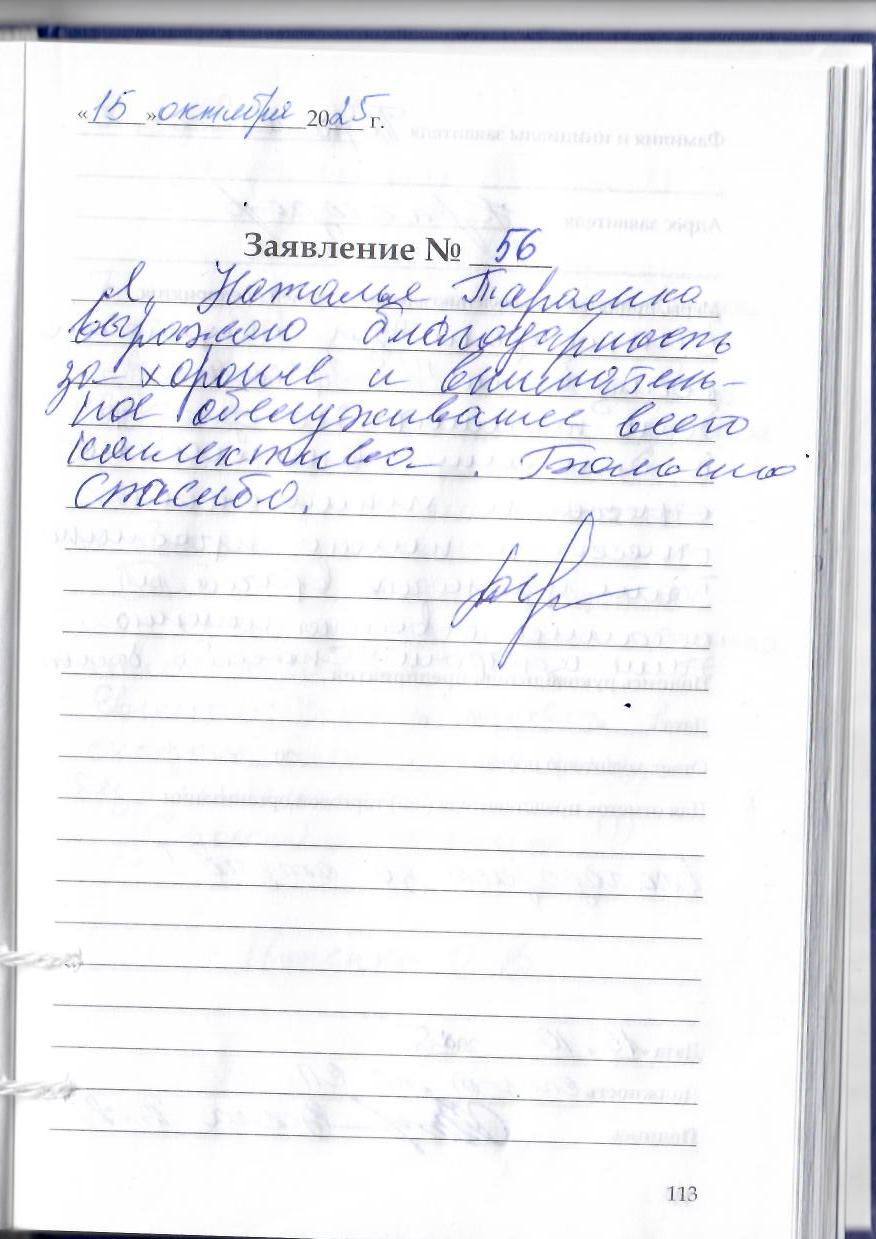 «15» октября 2025 г.
Заявление № 56
Я, Наталья Тарасенко
выражаю благодарность
за хорошее и вниматель-
ное обслуживание всего
коллектива. Большое
Спасибо.
113